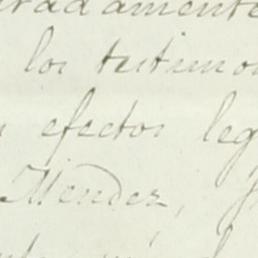 radamente
los testimo
efectos leg
Mendez,